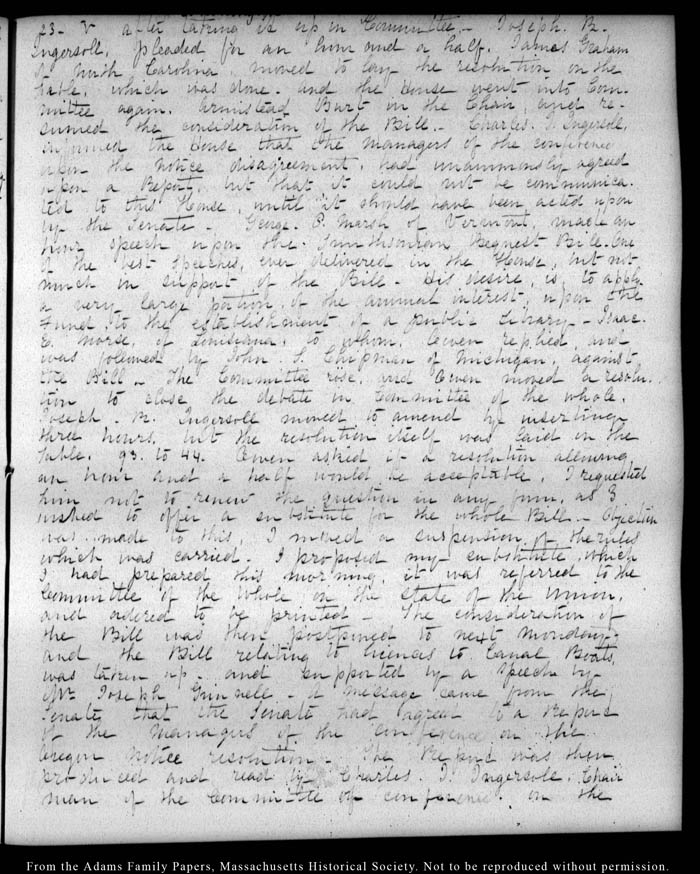 23. V. after taking it up in Committee. Joseph R.
Ingersoll, pleaded for an hour and a half. James Graham
of North Carolina moved to lay the resolution on the
table, which was done. and the House went into Com-
mittee again. Armistead Burt in the Chair, and re-
sumed the consideration of the Bill. Charles J. Ingersoll,
informed the House that the managers of the conference
upon the notice disagreement, had unanimously agreed
upon a Report, but that it could not be communica-
ted to this House, until it should have been acted upon
by the Senate. George. P. Marsh of Vermont, made an
hour speech upon the Smithsonian Bequest Bill. One
of the best speeches, ever delivered in the House, but not
much in support of the Bill. His desire, is, to apply
a very large portion, of the annual interest, upon the
Fund, to the establishment of a public Library. Isaac.
E. Morse, of Louisiana, to whom, Owen replied, and
was followed by John S. Chipman of Michigan, against
the Bill. The Committee rose, and Owen moved a resolu-
tion to close the debate in Committee of the whole.
Joseph. R. Ingersoll moved to amend by inserting
three hours, but the resolution itself was laid on the
table. 93. to 44. Owen asked if a resolution allowing
an hour and a half would be acceptable. I requested
him not to renew the question in any form, as I
wished to offer a substitute for the whole Bill. Objection
was made to this, I moved a suspension of the rules
which was carried. I proposed my substitute, which
I had prepared this morning, it was referred to the
Committee of the whole on the state of the Union,
and ordered to be printed. The consideration of
the Bill was then postponed to next Monday;
and the Bill relating to licences to Canal Boats,
was taken up. and supported by a speech by
Mr Joseph Grinnell. A Message came from the
Senate that the Senate had agreed to a Report
of the Managers of the conference on the
Oregon notice resolution. The Report was then
produced and read by Charles. J. Ingersoll, Chair
man of the Committee of conference. on the
From the Adams Family Papers, Massachusetts Historical Society. Not to be reproduced without permission.